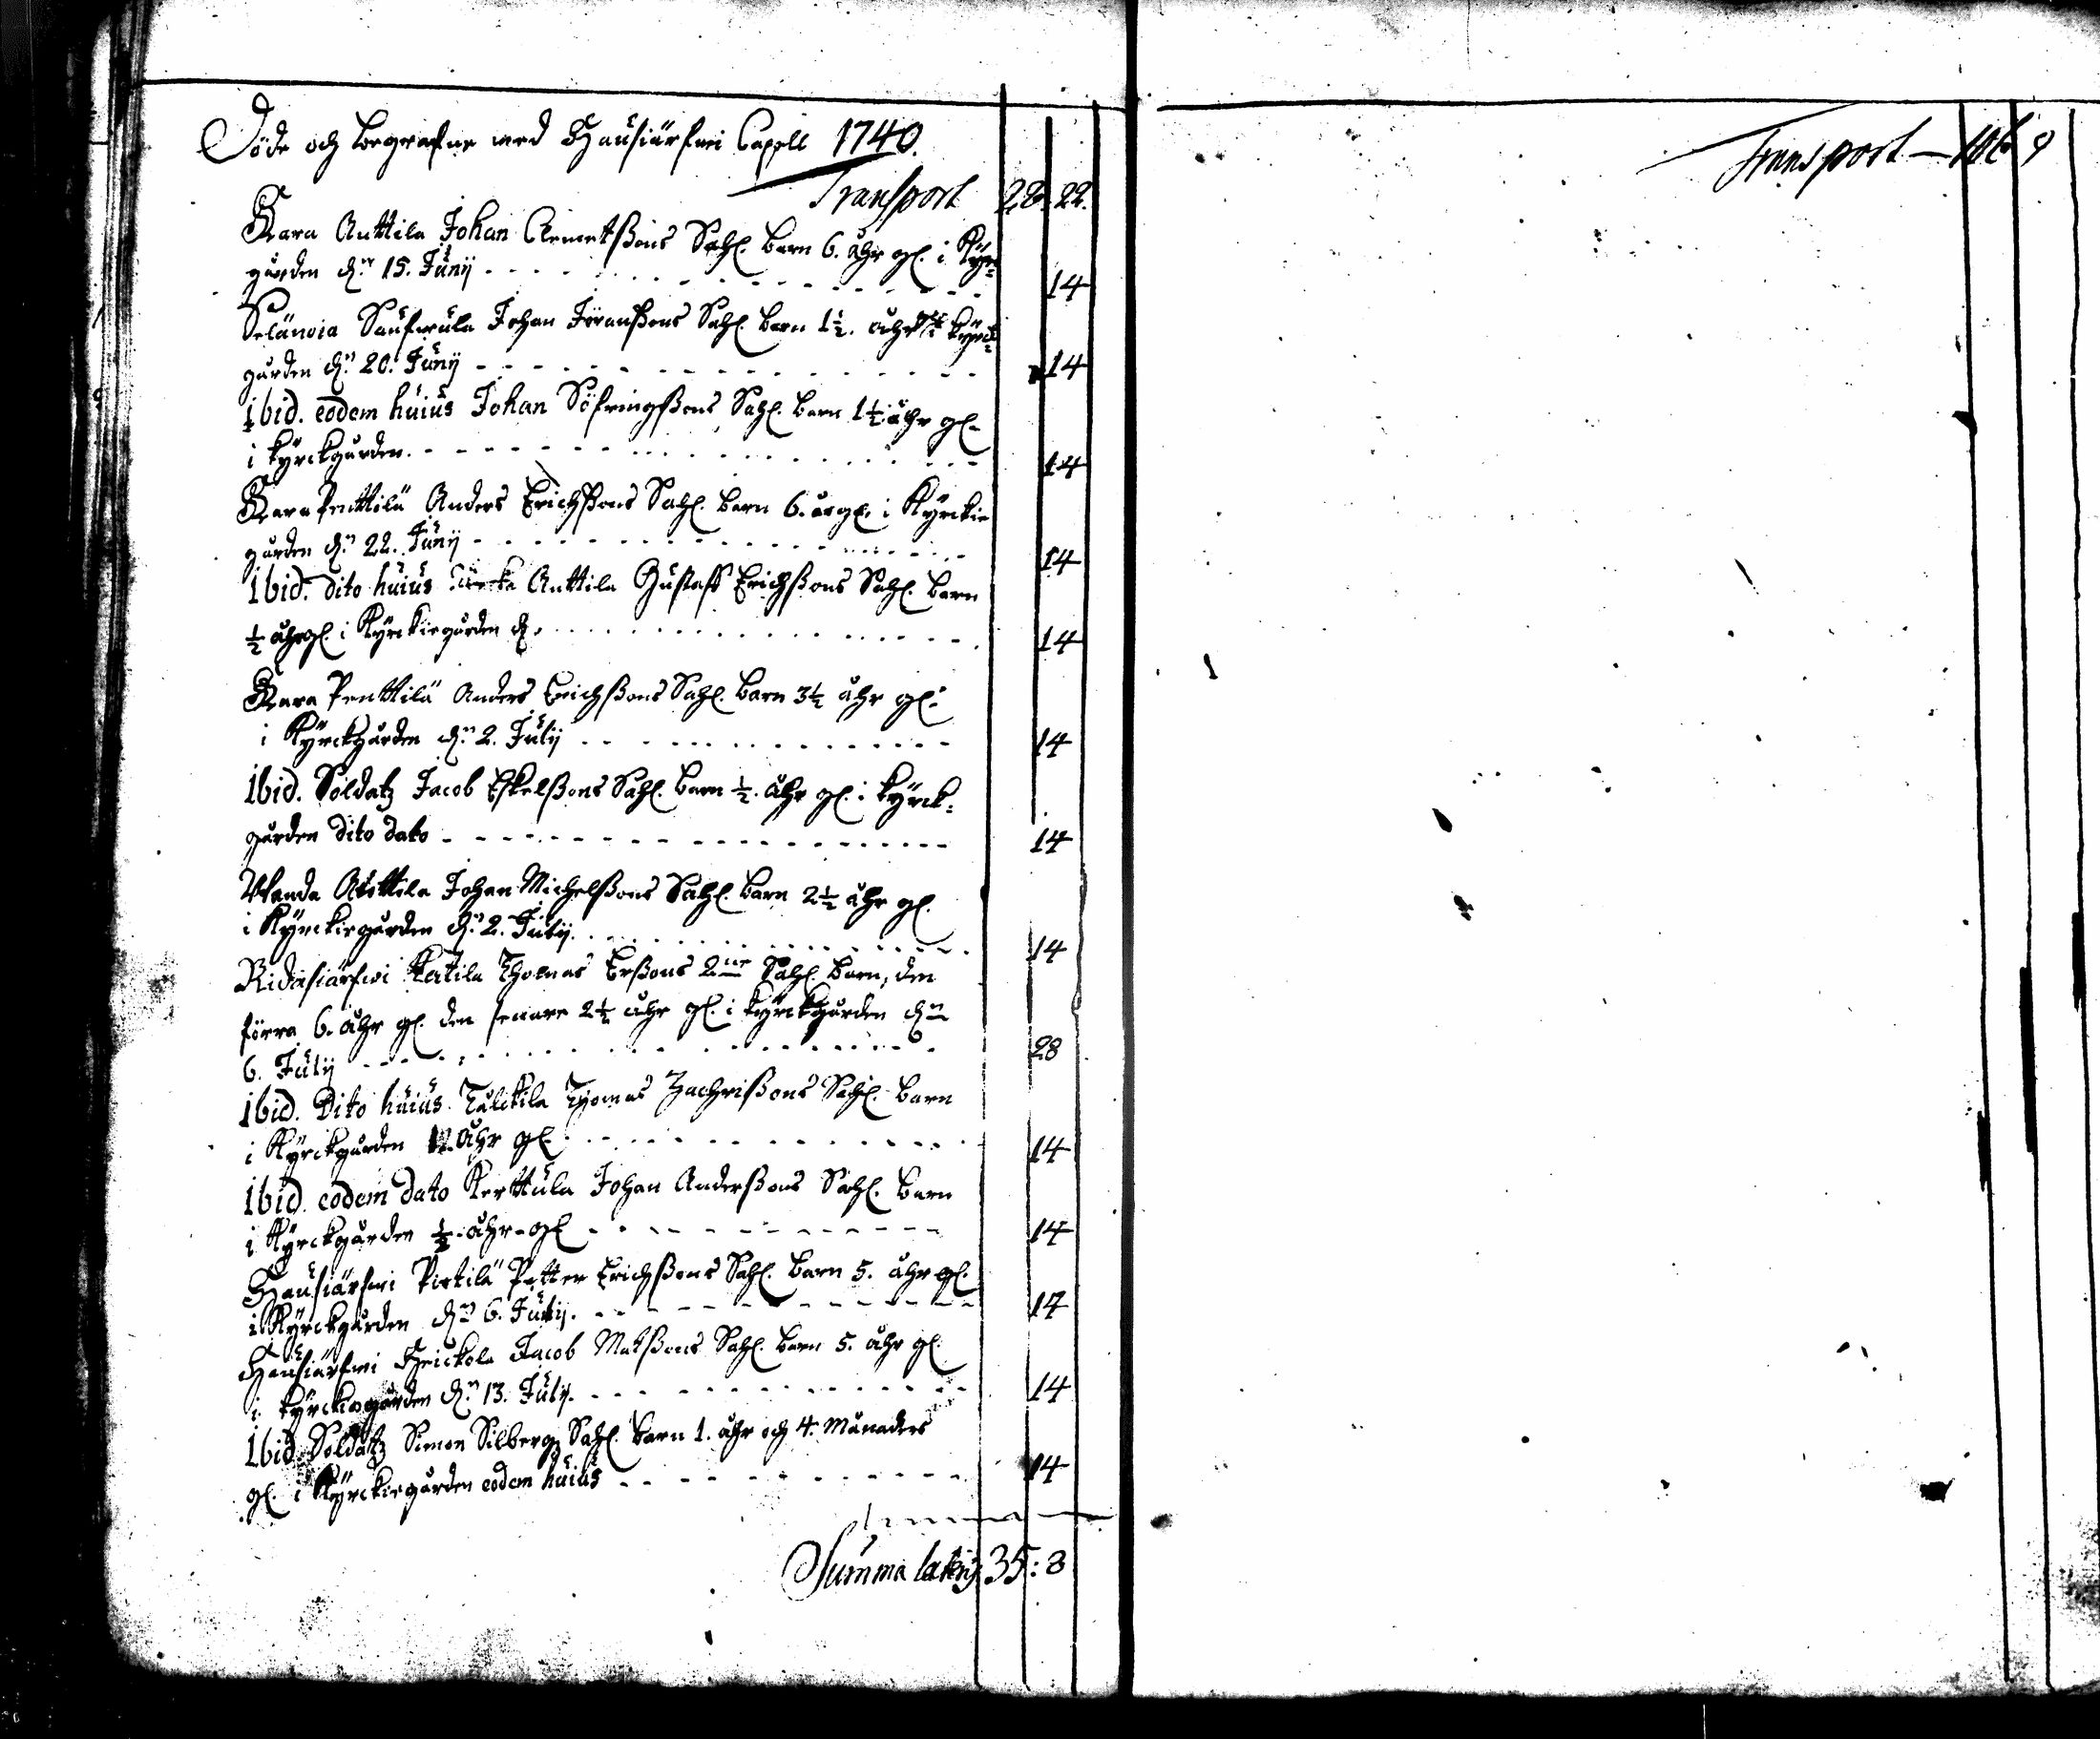 Döde och begrafne wed Hausjärfwi Capell 1740.
Transport 28. 22.
Kara Anttila Johan Clemetßons Sahl. barn 6. åhr gl. i Kyrc=
gården d:n 15. Junij - - - 14
Selänoia Johan Göranßons Sahl. barn 1½. åhr gl. i kyrck=
gården d:n 20. Junij - - - 14
ibid. eodem huius Johan Söfringßons Sahl. barn 1½ åhr gl.
i kyrckgården. - - - 14
Kara Penttilä Anders Erichßons Sahl. barn 6. år gl. i Kyrckie
gården d:n 22. Junij - - - 14
ibid. dito huius Anttila Gustaff Erichßons Sahl. barn
½ åhr gl. i Kyrckiegården - - - 14
Kara Penttilä Anders Erichßons Sahl. barn 3½ åhr gl.
i Kyrckgården d:n 2. Julij - - - 14
ibid. Soldatz Jacob Eskelßons Sahl. barn ½. åhr gl. i kyrck=
gården dito dato - - - 14
Anttila Johan Michelßons Sahl. barn 2½ åhr gl.
i Kyrckiegården d:n 2. Julij. - - - 14
Ridasjärfwi Thomas Erßons 2ne Sahl. barn, den
förra 6. åhr gl. den senare 2½ åhr gl. i kyrckgården d:n
6. Julij - - - 28
ibid. Dito huius Thomas Zachrißons Sahl. barn
i Kyrckgården åhr gl. - - - 14
ibid. eodem dato Kerttula Johan Anderßons Sahl. barn
i Kyrckgården ½ åhr gl - - - 14
Hausjärfwi Pietilä Petter Erichßons Sahl. barn 5. åhr gl.
i Kyrckgården d:n 6. Julij. - - - 14
Hausjärfwi Heickola Jacob Matßons Sahl. barn 5. åhr gl.
i kyrckiogården d:n 13. Julij. - - - 14
ibid Soldatz Simon Silberg Sahl. barn 1. åhr och 4. Månaders
gl. i Kyrckiegården eodem huius - - - 14
Summa lateris 35: 8
Transport —